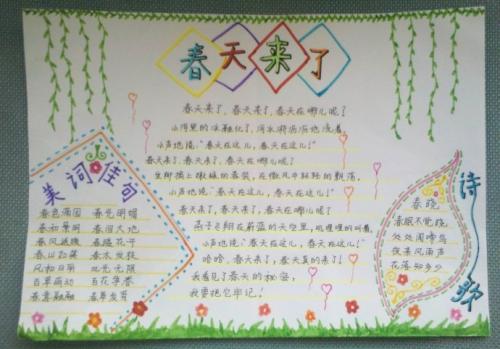 春天来了
春天来了，春天来了，春天在哪儿呢？
小河里的冰融化了，河水哗哗哗地流着，
小声地说：“春天在这儿，春天在这儿！”
春天来了，春天来了，春天在哪儿呢？
小声地说“春天在这儿，春天在这儿！”
春天来了，春天来了，春天在哪儿呢？
燕子飞翔在蔚蓝的天空里，叽哩哩的叫着，
小声地说“春天在这儿，春天在这儿！”
哈哈，春天来了，春天真的来了！
我看见了春天的秘密，
我要把它牢记！
美词佳句
春色满园 春光明媚
春和景明 春回大地
春风送暖 春暖花开
春山如笑 春木发枝
风和日丽 风光无限
百草萌动 百花争春
春意融融 春草发芽
诗歌
春晓
春眠不觉晓
处处闻啼鸟
夜来风雨声
花落知多少